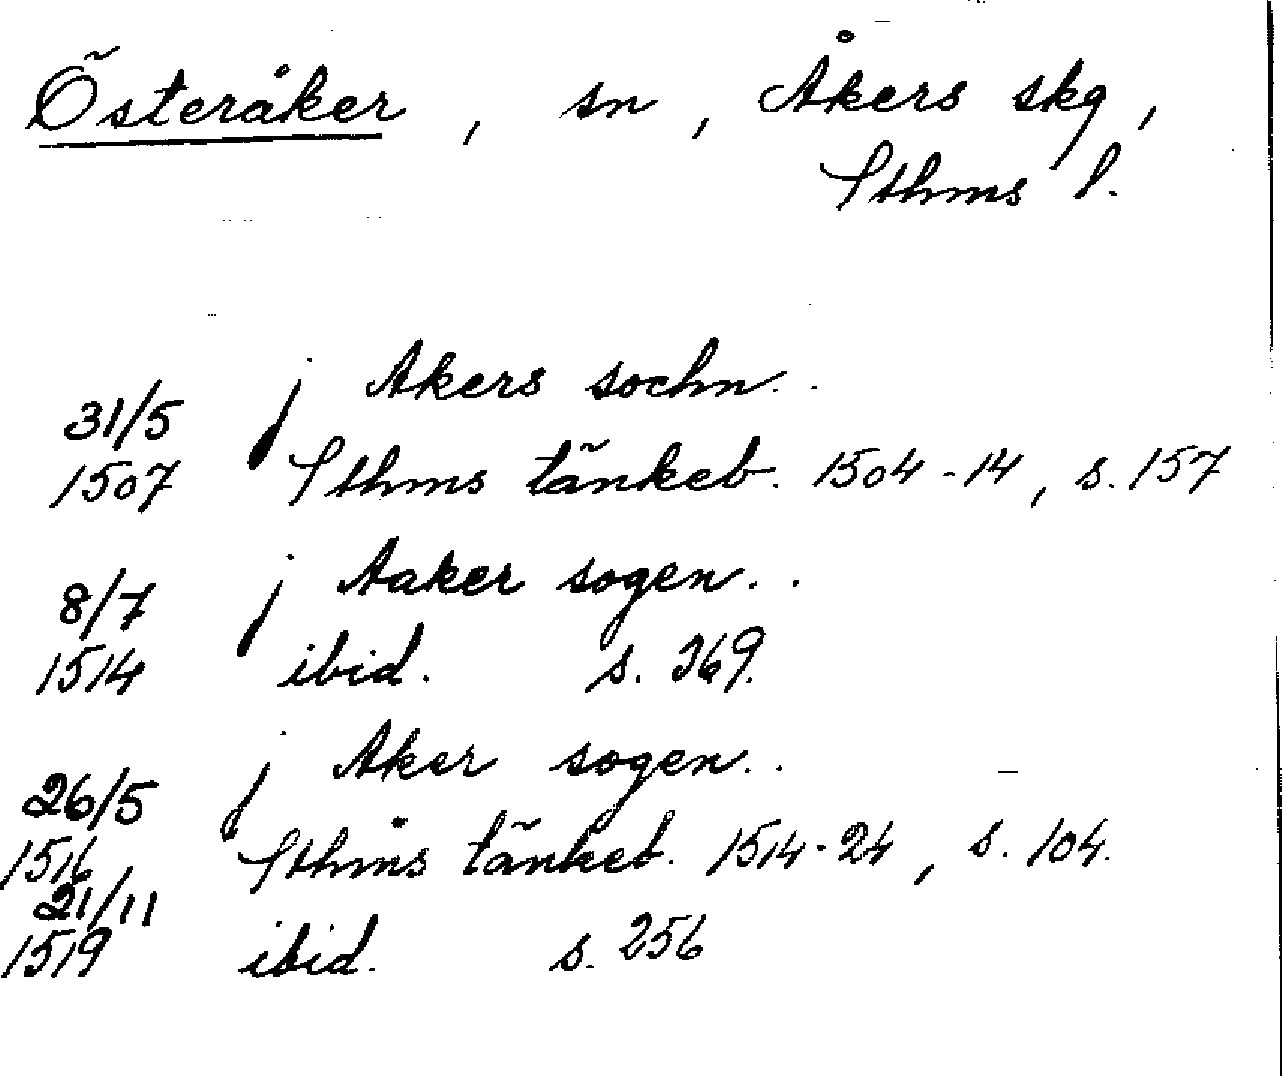 Österåker, sn, Åkers skg,
Sthms l.
31/5 j Akers sochn..
1507 Sthms tänkeb. 1504-14, s. 157
8/7 j Aaker sogen..
1514 ibid. s. 369.
26/5 j Aker sogen..
1516, Sthms tänkeb. 1514-24, s. 104.
21/11
1519 ibid. s. 256